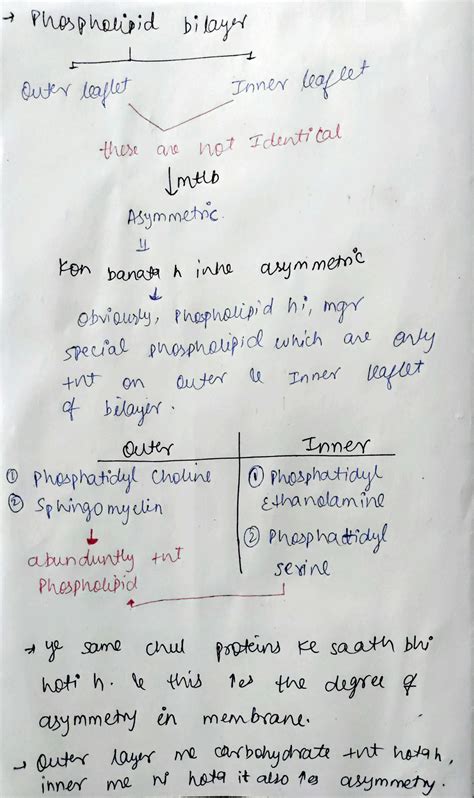 → Phospholipid bilayer
Outer leaflet Inner leaflet
these are not Identical
↓ mtlb
Asymmetric.
Kon banata h inhe asymmetric
↓
Obviously, Phospholipid hi, mgr
special phospholipid which are only
+nt on outer & Inner leaflet
of bilayer.
Outer Inner
① Phosphatidyl Choline
② Sphingomyelin
↓
abunduntly +nt
Phospholipid
① Phosphatidyl
Ethanolamine
② Phosphattidyl
serine
→ ye same chul proteins ke saath bhi
hoti h. & this ↑es the degree of
asymmetry in membrane.
→ Outer layer me carbohydrate +nt hota h,
inner me ni hota it also ↑es asymmetry.